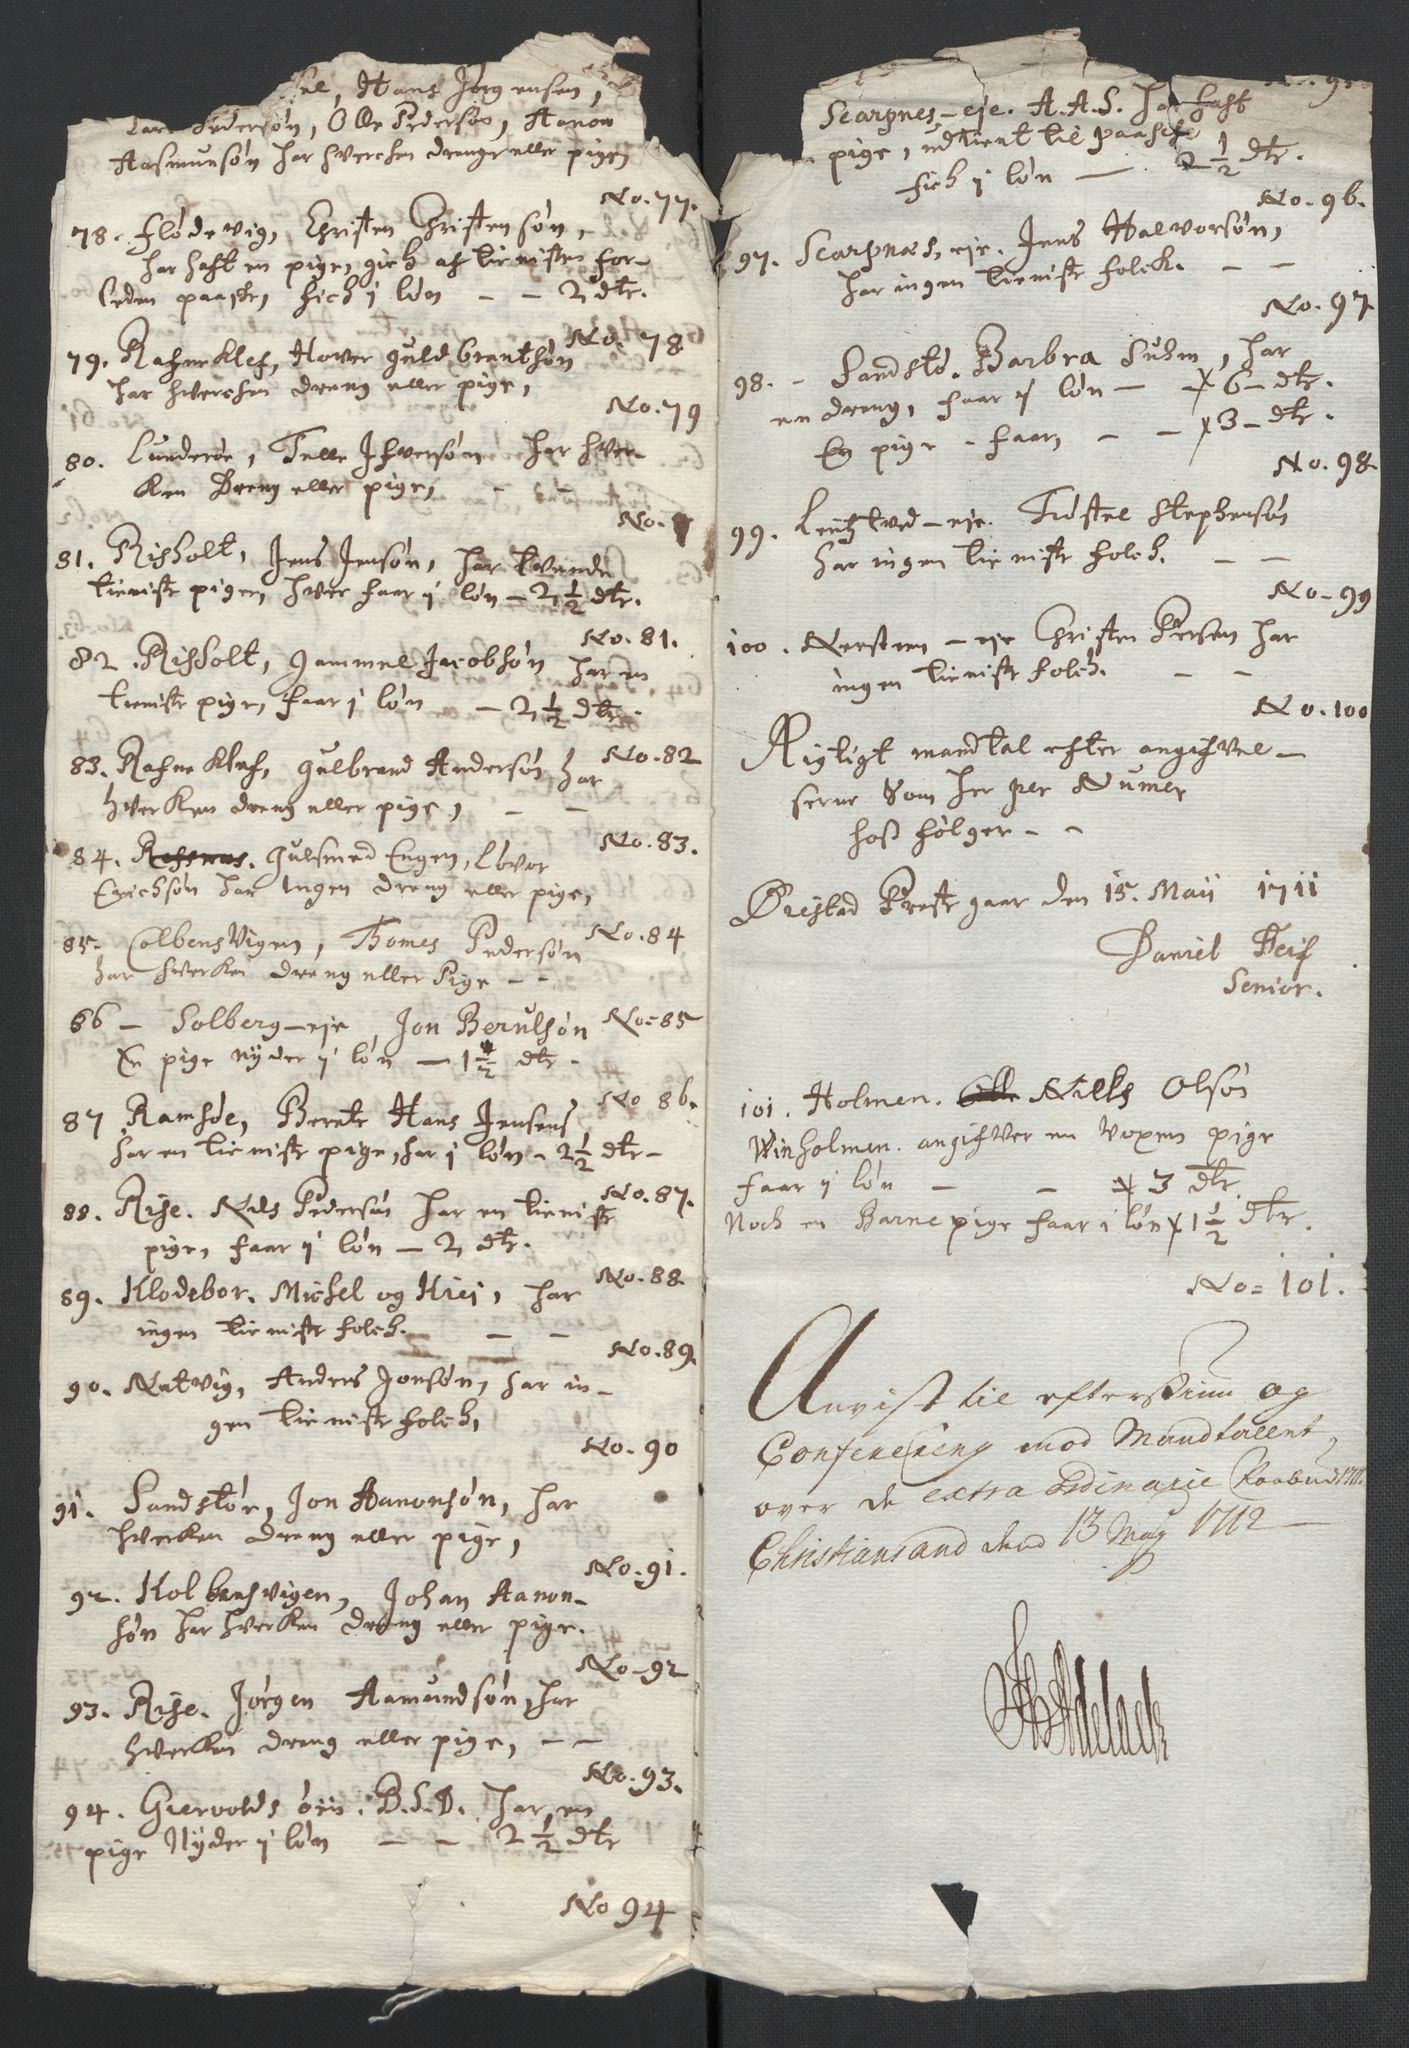 Hans Jørgensen,
Pedersøn, Olle Pedersøn, Aanon
Aasmunsøn har hverchen drenge eller pige,
No. 77.
78. Flødevig, Christen Christensøn,
har haft en pige, gich af tienisten for-
leden paaske, fich j løn - - 2 dlr.
No. 78
79. Rafneklef, Hover guldbranthsøn
har hverchen dreng eller pige,
No. 79
80. Lunderøe, Telle Ifwersøn har hver-
ken Dreng eller pige, - -
No.
81. Risholt, Jens Jensøn, har tvende
tieniste piger, hver faar ij løn - 2 1/2 dlr.
No. 81.
82. Risholt, gammel Jacobsøn har en
tieniste pige, faar j løn - 2 1/2 dlr.
No. 82
83. Rafneklef, gulbrand Andersøn har
hverken dreng eller pige, - -
No. 83.
84. Gulsmed Engen, Lovor
Erichsøn har Ingen dreng eller pige,
No. 84
85. ColbensVigen, Tomes Pedersøn
har hverken dreng eller Pige - -
No. 85
86 - Solberg-eje, Jon Berulsøn
En pige nyder ij løn - 1 1/2 dlr.
No 86.
87. Ramsøe, Berete Hans Jensens
har en tieniste pige, har j løn - 2 1/2 dlr -
No. 87.
88. Rise. Niels Pedersøn har en tieniste
pige, faar ij løn - 2 dlr.
No. 88
89. Klodebor. Michel og Kiei, har
ingen tieniste folch. - -
No. 89.
90. Natvig, Anders Jonsøn, har in-
gen tieniste folch,
No. 90
91. Sandstøe, Jon Aanonsøn, har
hverken dreng eller pige,
No. 91.
92. Kolbensvigen, Johan Aanon-
søn har hverken dreng eller pige.
No. 92
93. Rise. Jørgen Aamundsøn, har
hverken dreng eller pige, - -
No. 93.
94. Giervolds øen. B.S.D. har en
pige Nyder ij løn - - 2 1/2 dlr
No 94
No. 95
Scarpnes-eje. A.A.S. har haft
pige, udtient til paaske
fich j løn - 2 1/2 dlr.
No. 96.
97. Scarpnæs, eje. Jens Halvorsøn,
har ingen tieniste folck. - -
No. 97
98. - Sandstø. Barbra Suhm, har
en dreng, faar ij løn - - 6 - dlr.
En pige - faar, - - 3 - dlr.
No. 98
99. - eje. Tostel Stephensøn
har ingen tieniste folch. - -
No. 99
100. Neersteen - eje Christen Persen har
ingen tieniste folch. - -
No. 100
Rigtigt mandtal efter angifvel-
serne Som her per Numer
hoss følger - -
Øiestad Prestegaar den 15. Maij 1711
Daniel Feif
Senior.
101. Holmen. Niels Olsøn
Winholmen. angifver en Voxen pige
faar ij løn - - 3 dlr.
Noch en Barne pige faar i løn 1 1/2 dlr.
No = 101.
Anvist til eftersiun og
Conferering mod Mandtallent,
over de extra Ordinarie Paabud 1711.
Christiansand dend 13 May 1712
Adelaer